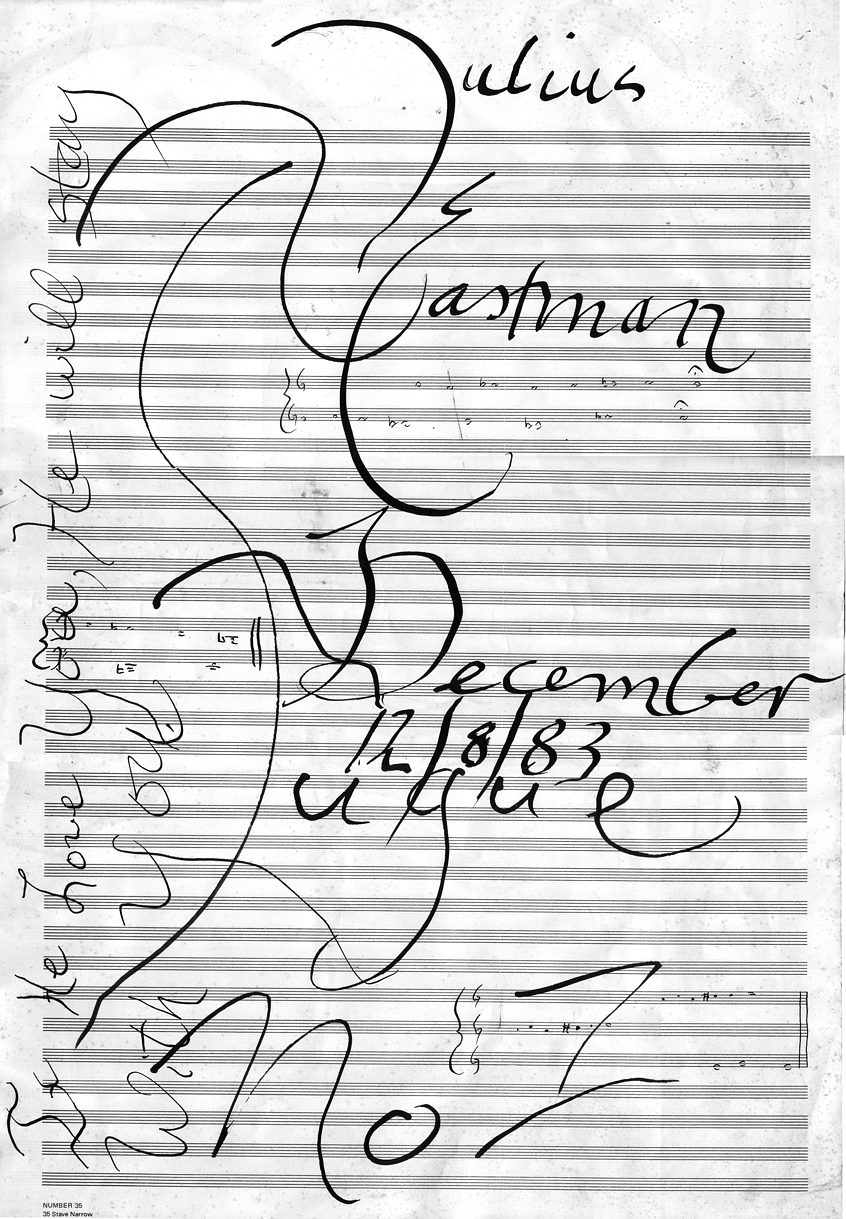 Julius
Eastman
December
12/8/83
Fugue
No 7
If He Love You, He will stay
With You
NUMBER 35
35 Stave Narrow